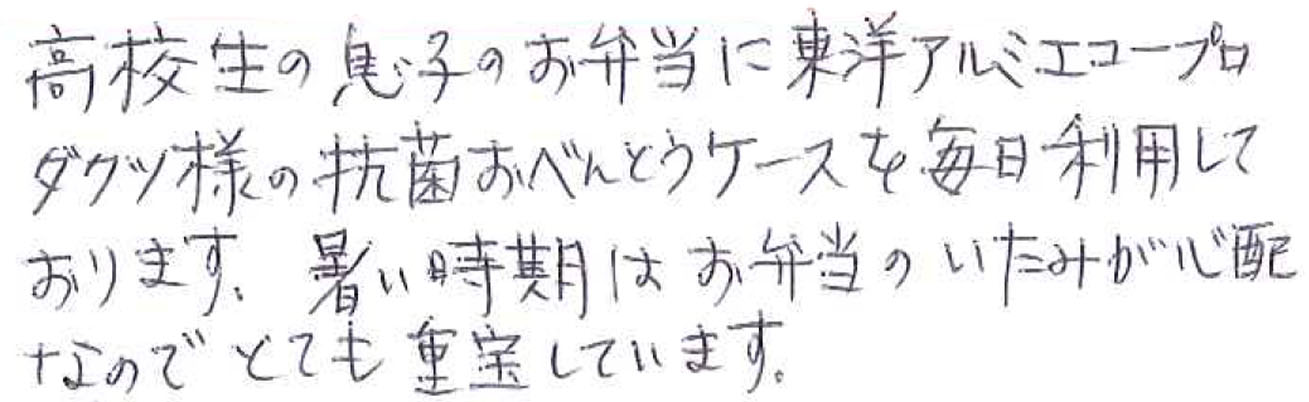 高校生の息子のお弁当に東洋アルミエコープロ
ダクツ様の抗菌おべんとうケースを毎日利用して
おります。暑い時期はお弁当のいたみが心配
なのでとても重宝しています。